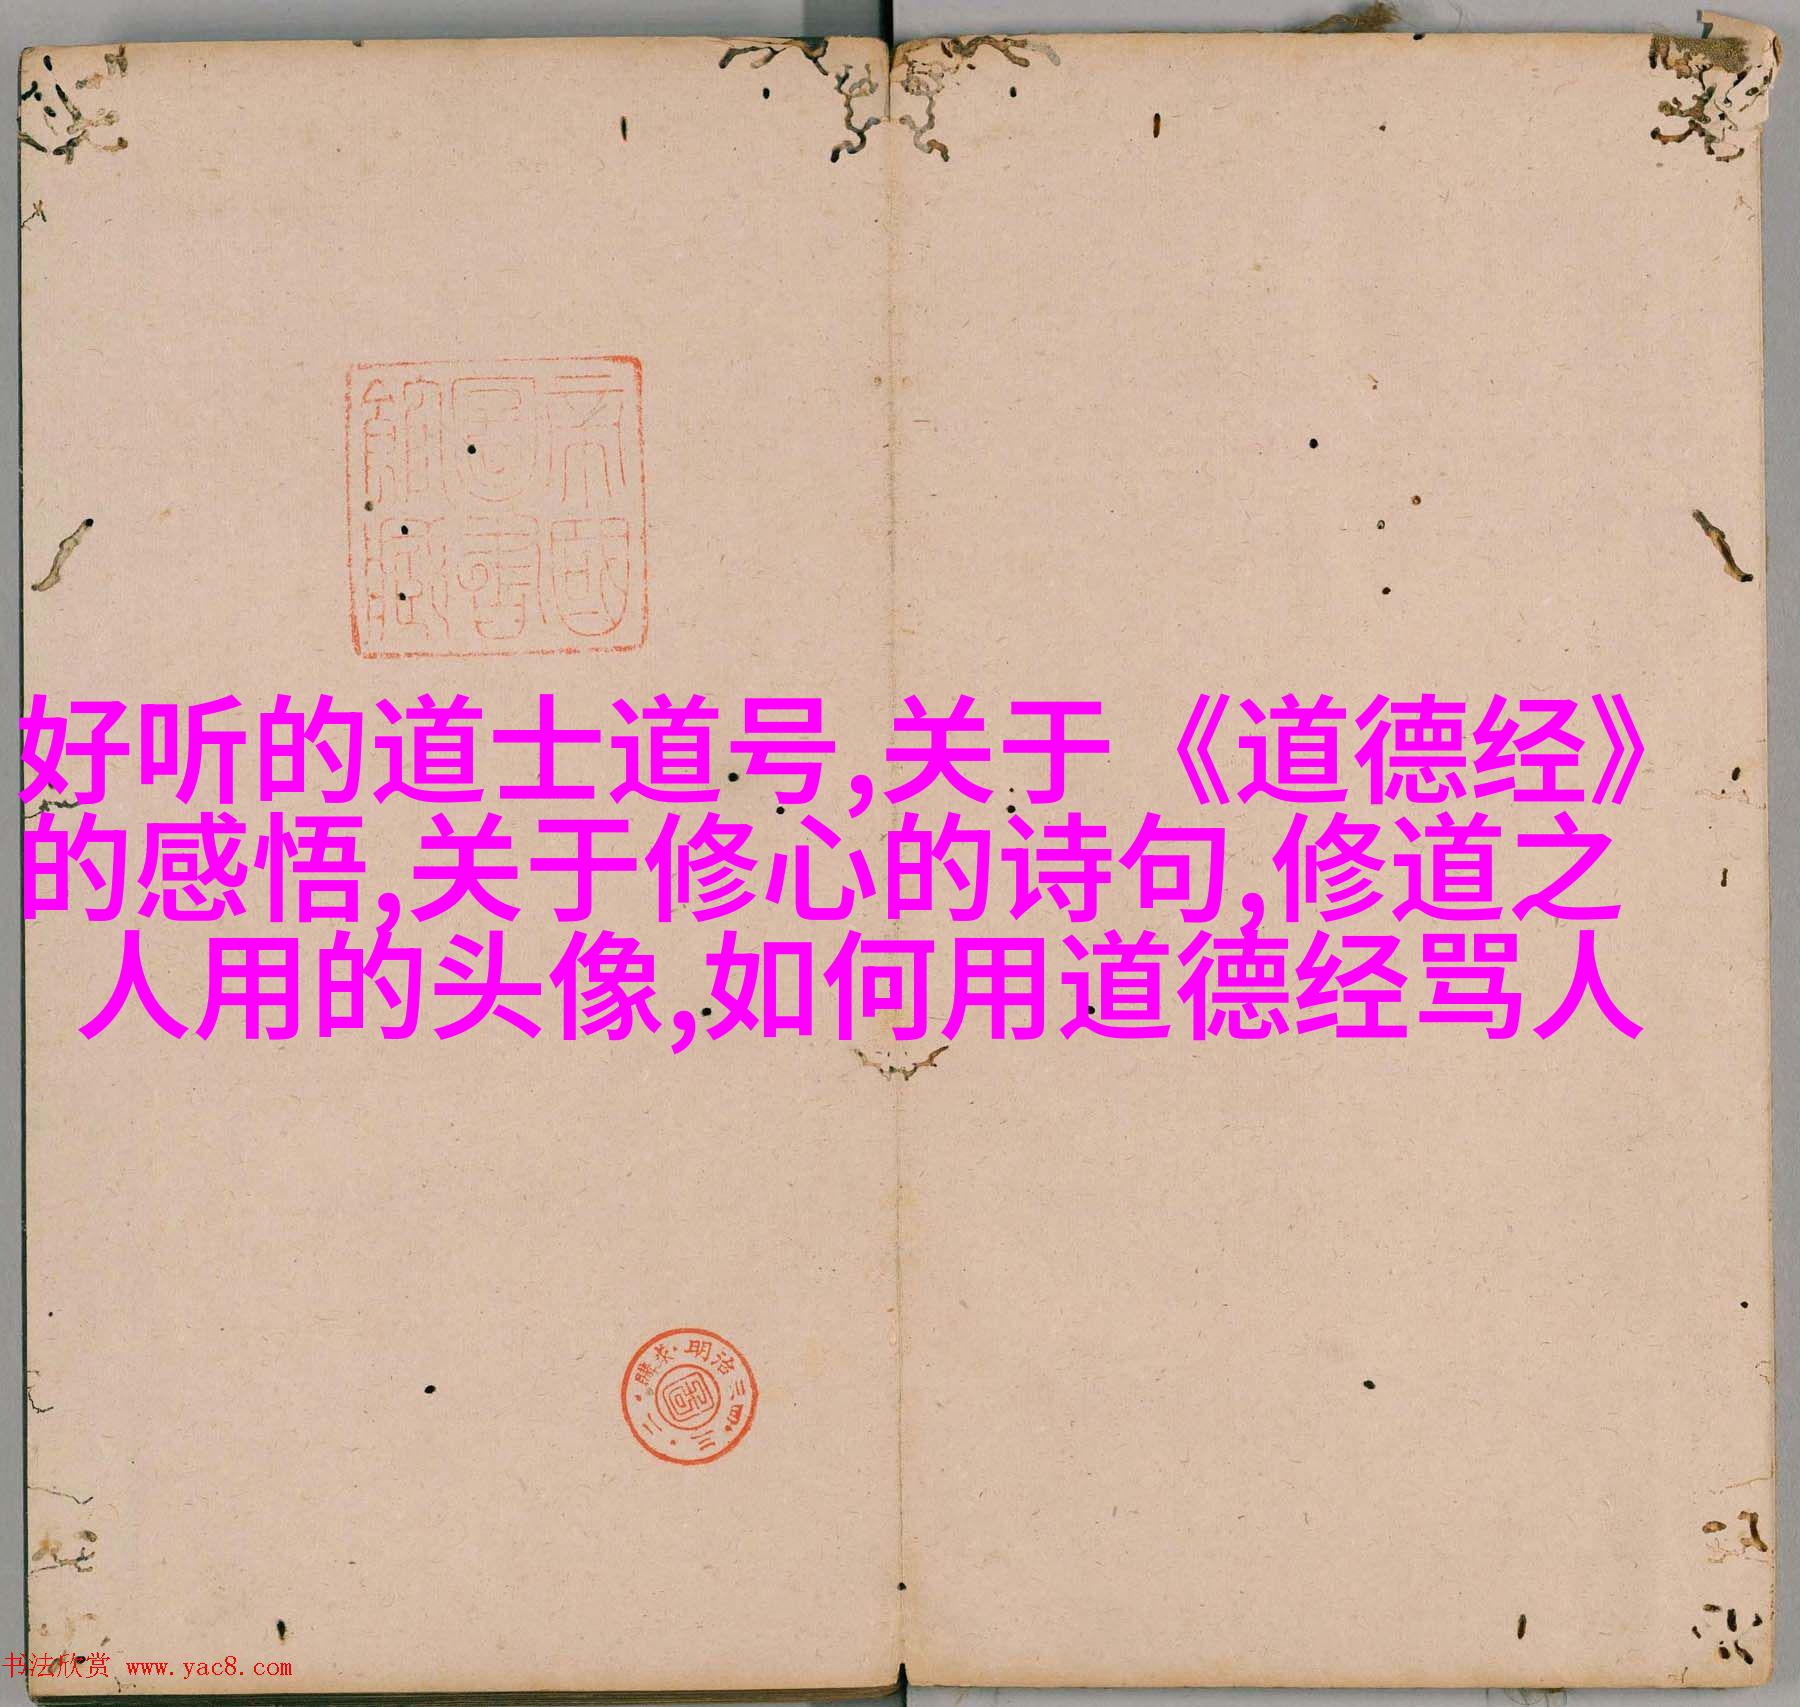 帝国
图书
馆藏
好听的道士道号,关于《道德经》
的感悟,关于修心的诗句,修道之
人用的头像,如何用道德经骂人
明治三四·三·二·購求·
书法欣赏 www.yac8.com